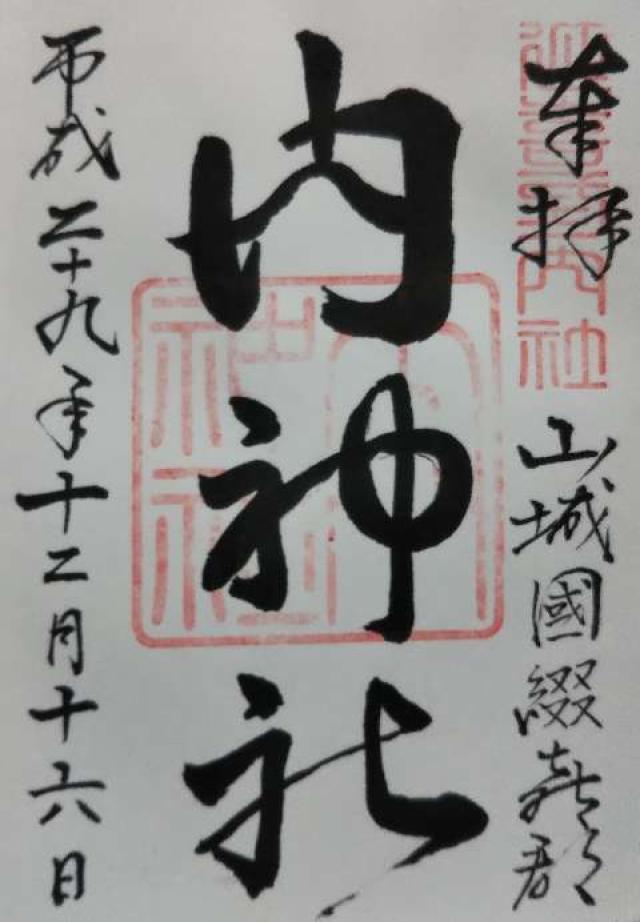 奉拝
山城國綴喜郡
内神社
平成二十九年十二月十六日